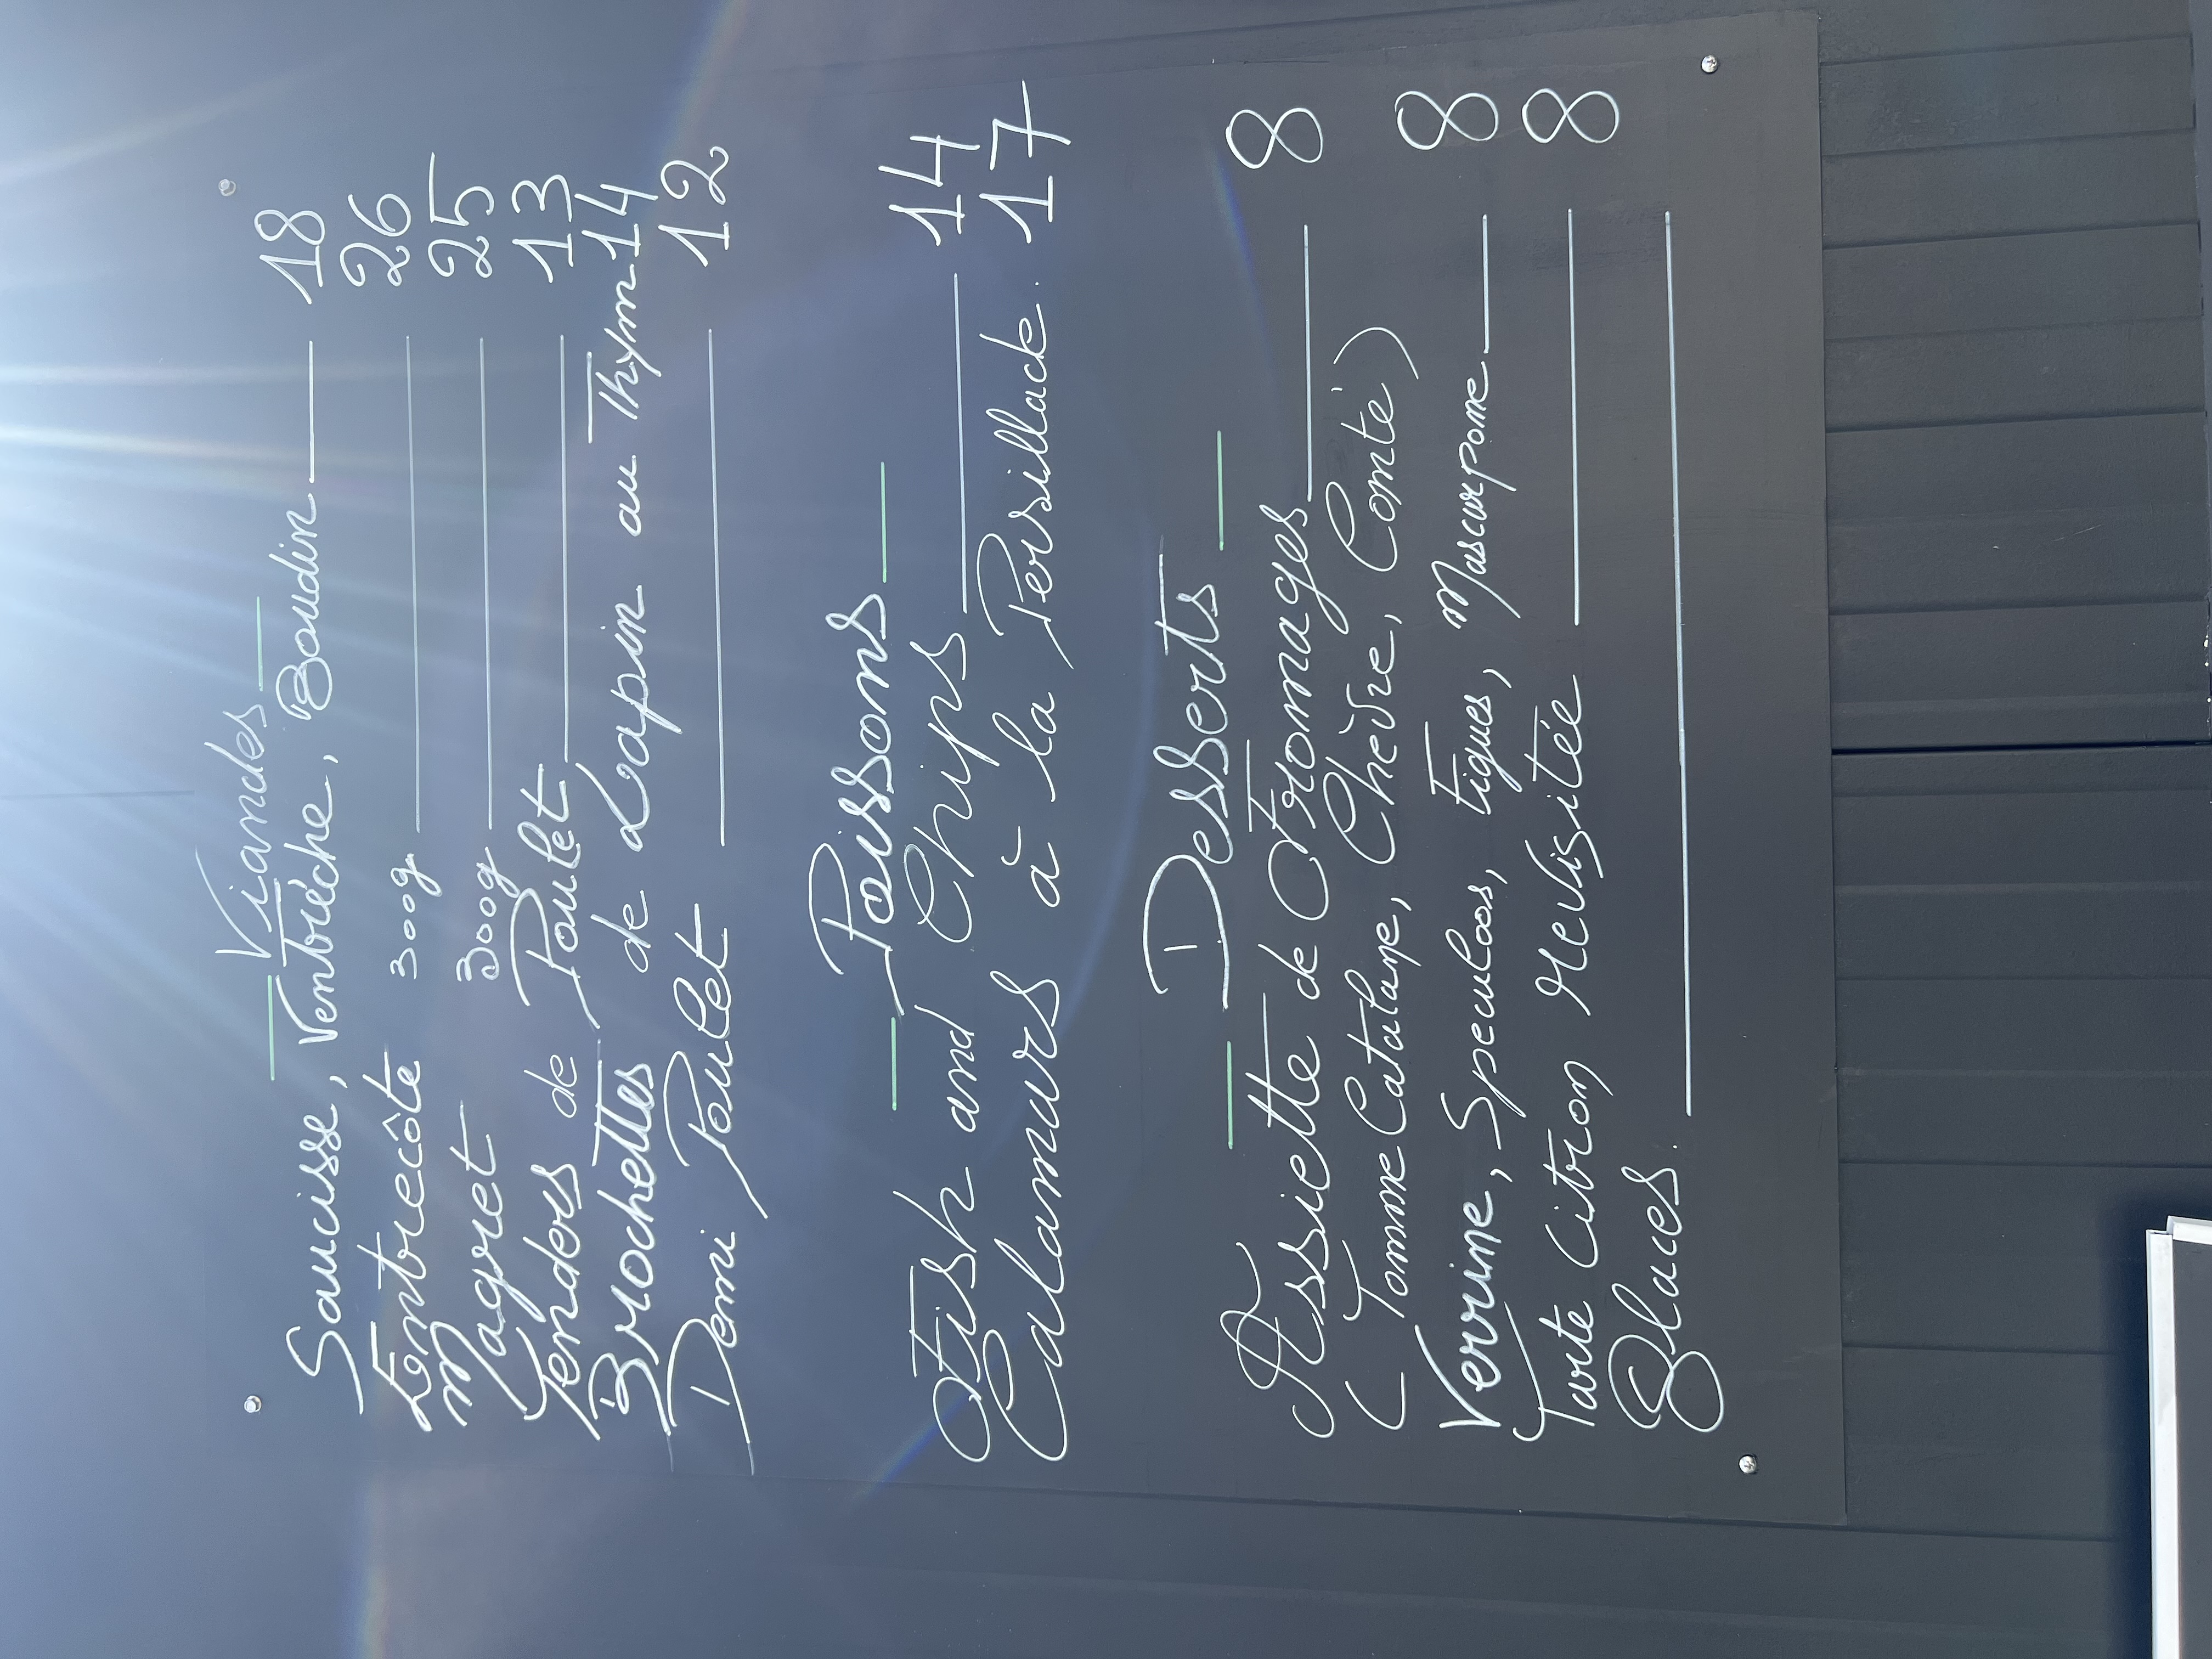 Viandes
Saucisse, Ventrèche, Boudin 18
Entrecôte 300g 26
Magret 300g 25
Tenders de Poulet 13
Brochettes de Lapin au Thym 14
Demi Poulet 12
Poissons
Fish and Chips 14
Calamars à la Persillade. 17
Desserts
Assiette de Fromages 8
(Tomme Catalane, Chèvre, Comté)
Verrine, Speculos, figues, Mascarpone 8
Tarte Citron revisitée 8
Glaces.